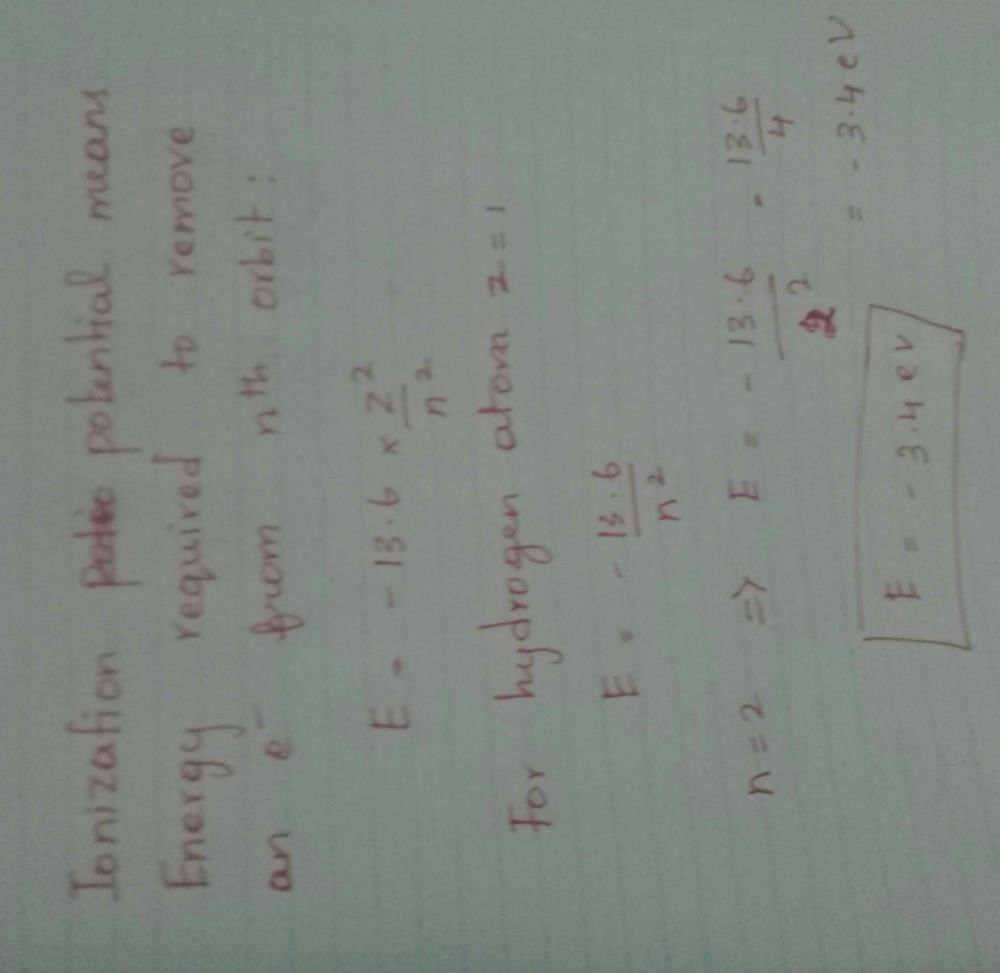 Ionization potio potential means
Energy required to remove
an e⁻ from nᵗʰ orbit :
E = - 13.6 × Z²/n²
For hydrogen atom z = 1
E = - 13.6/n²
n = 2 => E = - 13.6/2² = - 13.6/4
= - 3.4 eV
E = - 3.4 eV